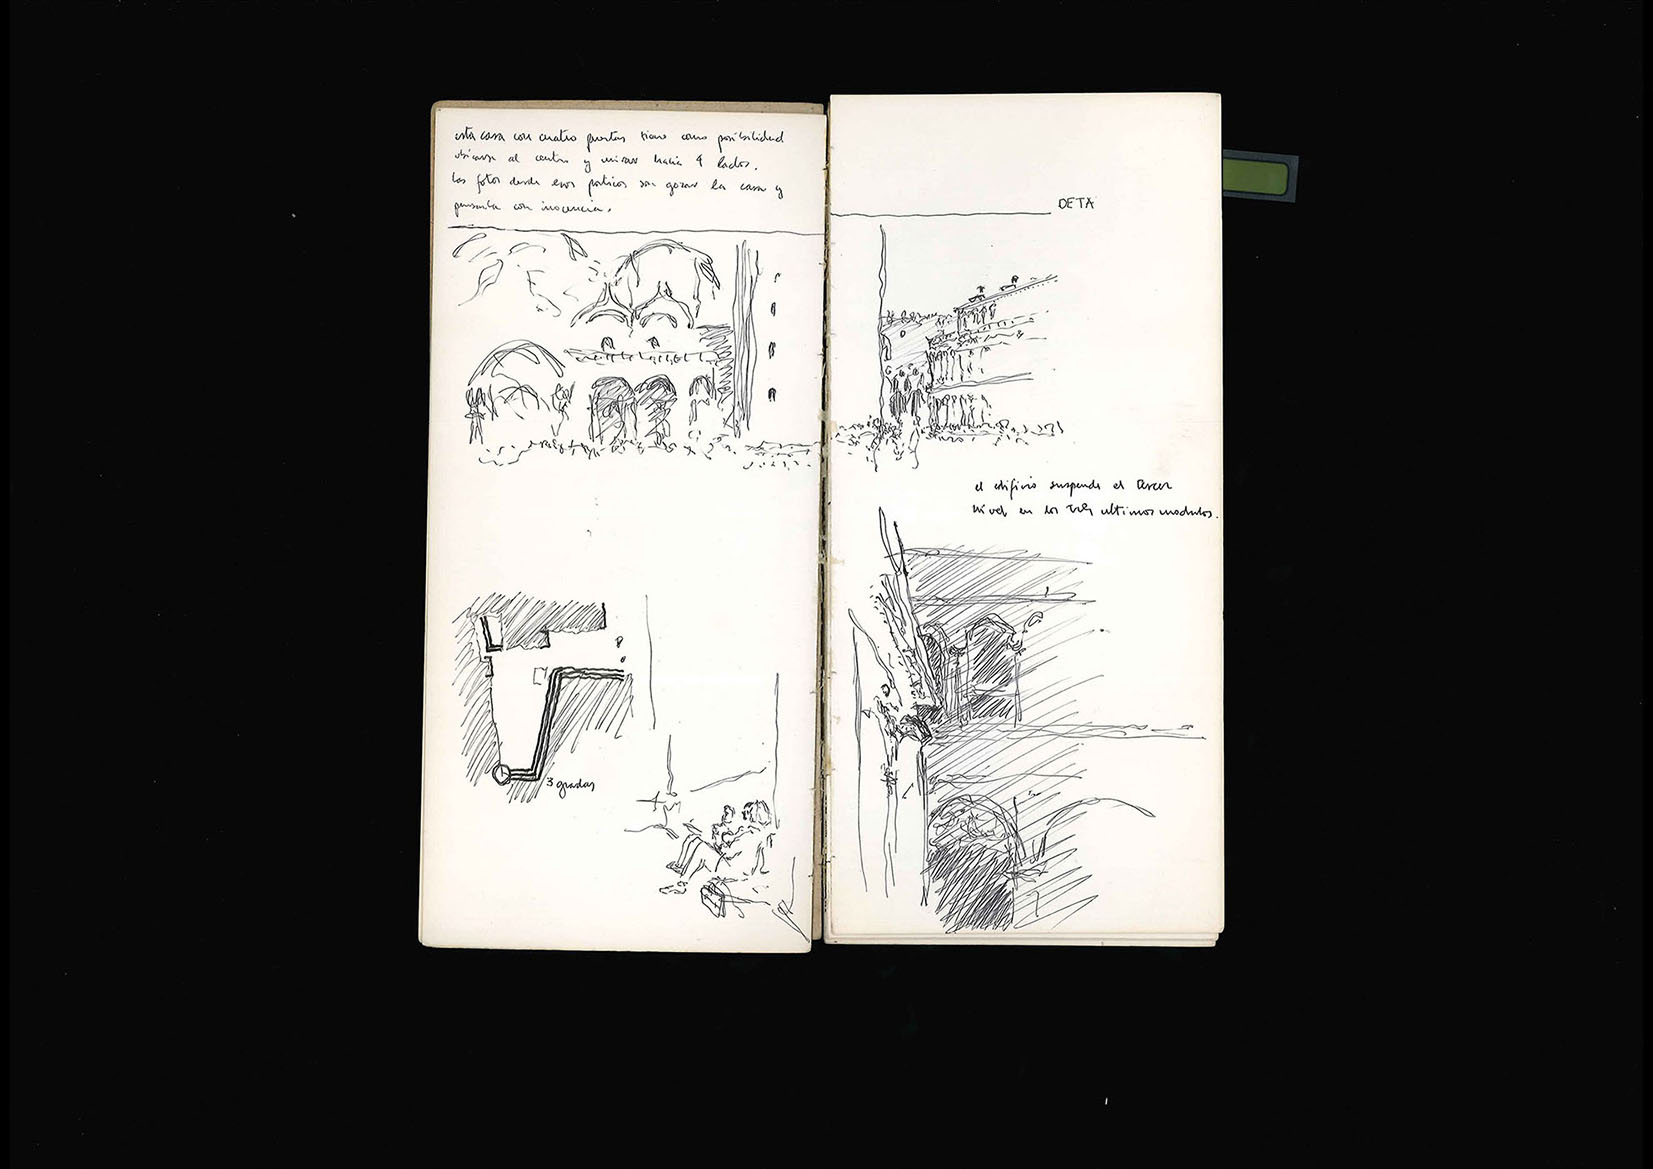 esta casa con cuatro puertas tiene como posibilidad
ubicarse al centro y mirar hacia 4 lados.
las fotos desde esos porticos son gozar la casa y
pensarla con inocencia.
DETA
el edificio suspende el tercer
nivel en los tres ultimos modulos.
3 gradas